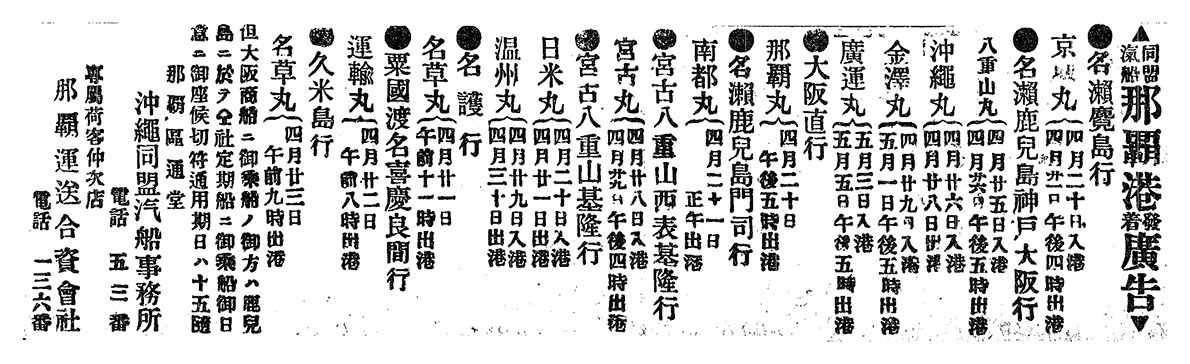 ▲同盟汽船那覇港發着廣告▼
●名瀨麑島行
京城丸 四月二十日入港
四月廿一日午後四時出港
●名瀨鹿兒島神戸大阪行
八重山丸 四月廿五日入港
四月廿六日午後五時出港
沖繩丸 四月廿六日入港
四月廿八日出港
金澤丸 四月廿九日入港
五月一日午後五時出港
廣運丸 五月三日入港
五月五日午後五時出港
●大阪直行
那覇丸 四月二十日
午後五時出港
●名瀨鹿兒島門司行
南都丸 四月二十一日
正午出港
●宮古八重山西表基隆行
宮古丸 四月廿八日入港
四月廿九日午後四時出港
●宮古八重山基隆行
日米丸 四月二十日入港
四月廿一日出港
温州丸 四月廿九日入港
四月三十日出港
●名護行
名草丸 四月廿一日
午前十一時出港
●粟國渡名喜慶良間行
運輸丸 四月廿二日
午前八時出港
●久米島行
名草丸 四月廿三日
午前九時出港
但大阪商船ニ御乘船ノ御方ハ鹿兒
島ニ於テ仝社定期船ニ御乘船御日
意ニ御座候切符通用期日ハ十五隨
那覇區通堂
沖繩同盟汽船事務所
電話 五三番
專屬荷客仲次店
那覇運送合資會社
電話 一三六番